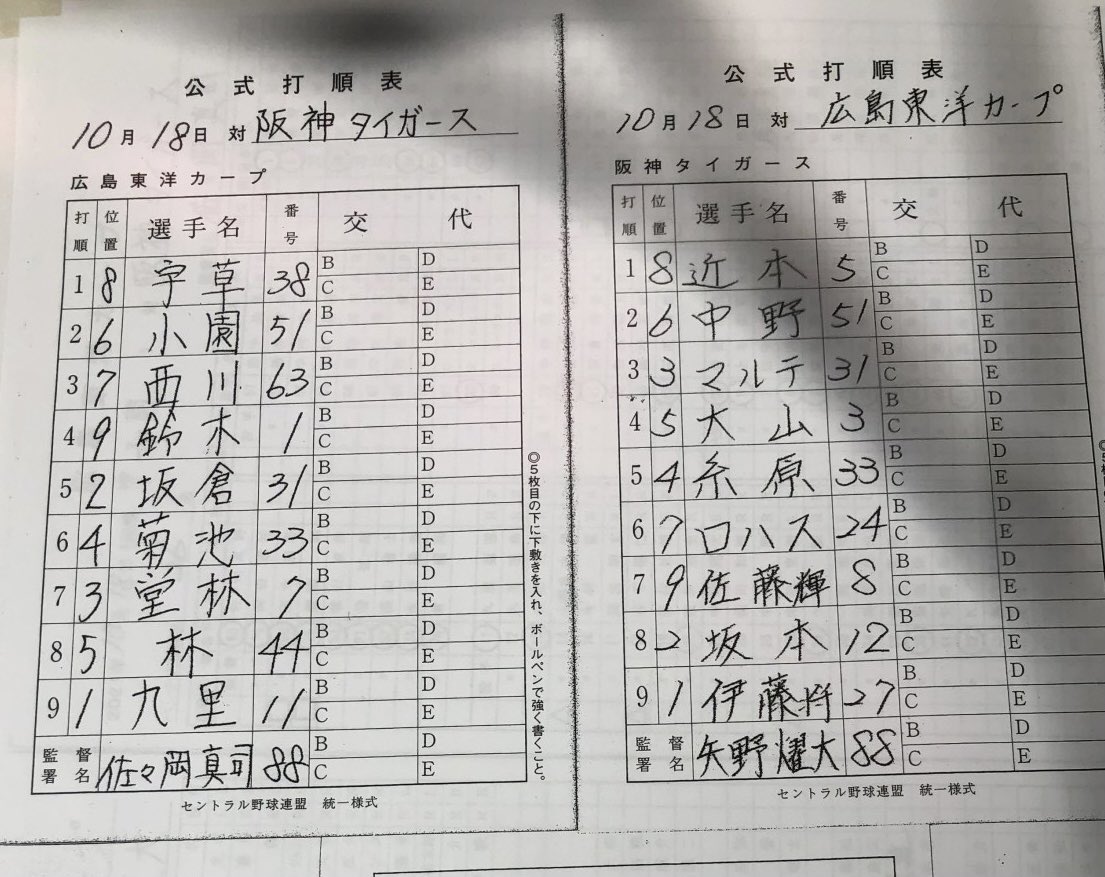 公式打順表
10月18日 対 阪神タイガース
広島東洋カープ
打順 位置 選手名 番号 交代
1 8 宇草 38 B D C E
2 6 小園 51 B D C E
3 7 西川 63 B D C E
4 9 鈴木 1 B D C E
5 2 坂倉 31 B D C E
6 4 菊池 33 B D C E
7 3 堂林 7 B D C E
8 5 林 44 B D C E
9 1 九里 11 B D C E
監督署名 佐々岡真司 88 B D C E
セントラル野球連盟 統一様式
◎5枚目の下に下敷きを入れ、ボールペンで強く書くこと。
公式打順表
10月18日 対 広島東洋カープ
阪神タイガース
打順 位置 選手名 番号 交代
1 8 近本 5 B D C E
2 6 中野 51 B D C E
3 3 マルテ 31 B D C E
4 5 大山 3 B D C E
5 4 糸原 33 B D C E
6 7 ロハス 24 B D C E
7 9 佐藤輝 8 B D C E
8 2 坂本 12 B D C E
9 1 伊藤将 27 B D C E
監督署名 矢野燿大 88 B D C E
セントラル野球連盟 統一様式